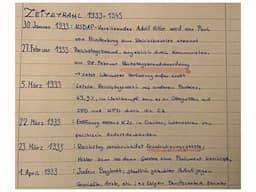 ZEITSTRAHL 1933-1945
30. Januar 1933: NSDAP-Vorsitzender Adolf Hitler wird von Paul
von Hindenburg zum Reichskanzler ernannt
27. Februar 1933: Reichstagsbrand, angeblich durch Kommunisten,
am 28. Februar Reichstagsbrandverordnung
→ setzt Weimarer Verfassung außer Kraft
5. März 1933: Letzte Reichstagswahl mit anderen Parteien,
43,9%, im Wahlkampf kam es zu Übergriffen auf
SPD und KPD durch die SA
22. März 1933: Eröffnung erstes KZs in Dachau, Internierung von
politisch Andersdenkenden
23. März 1933: Reichstag verabschiedet Ermächtigungsgesetz,
Hitler kann so Gesetze ohne Parlament beschließen
1. April 1933: Juden Boykott, staatlich gelenkter Boykott gegen
Geschäfte, Ärzte, etc.